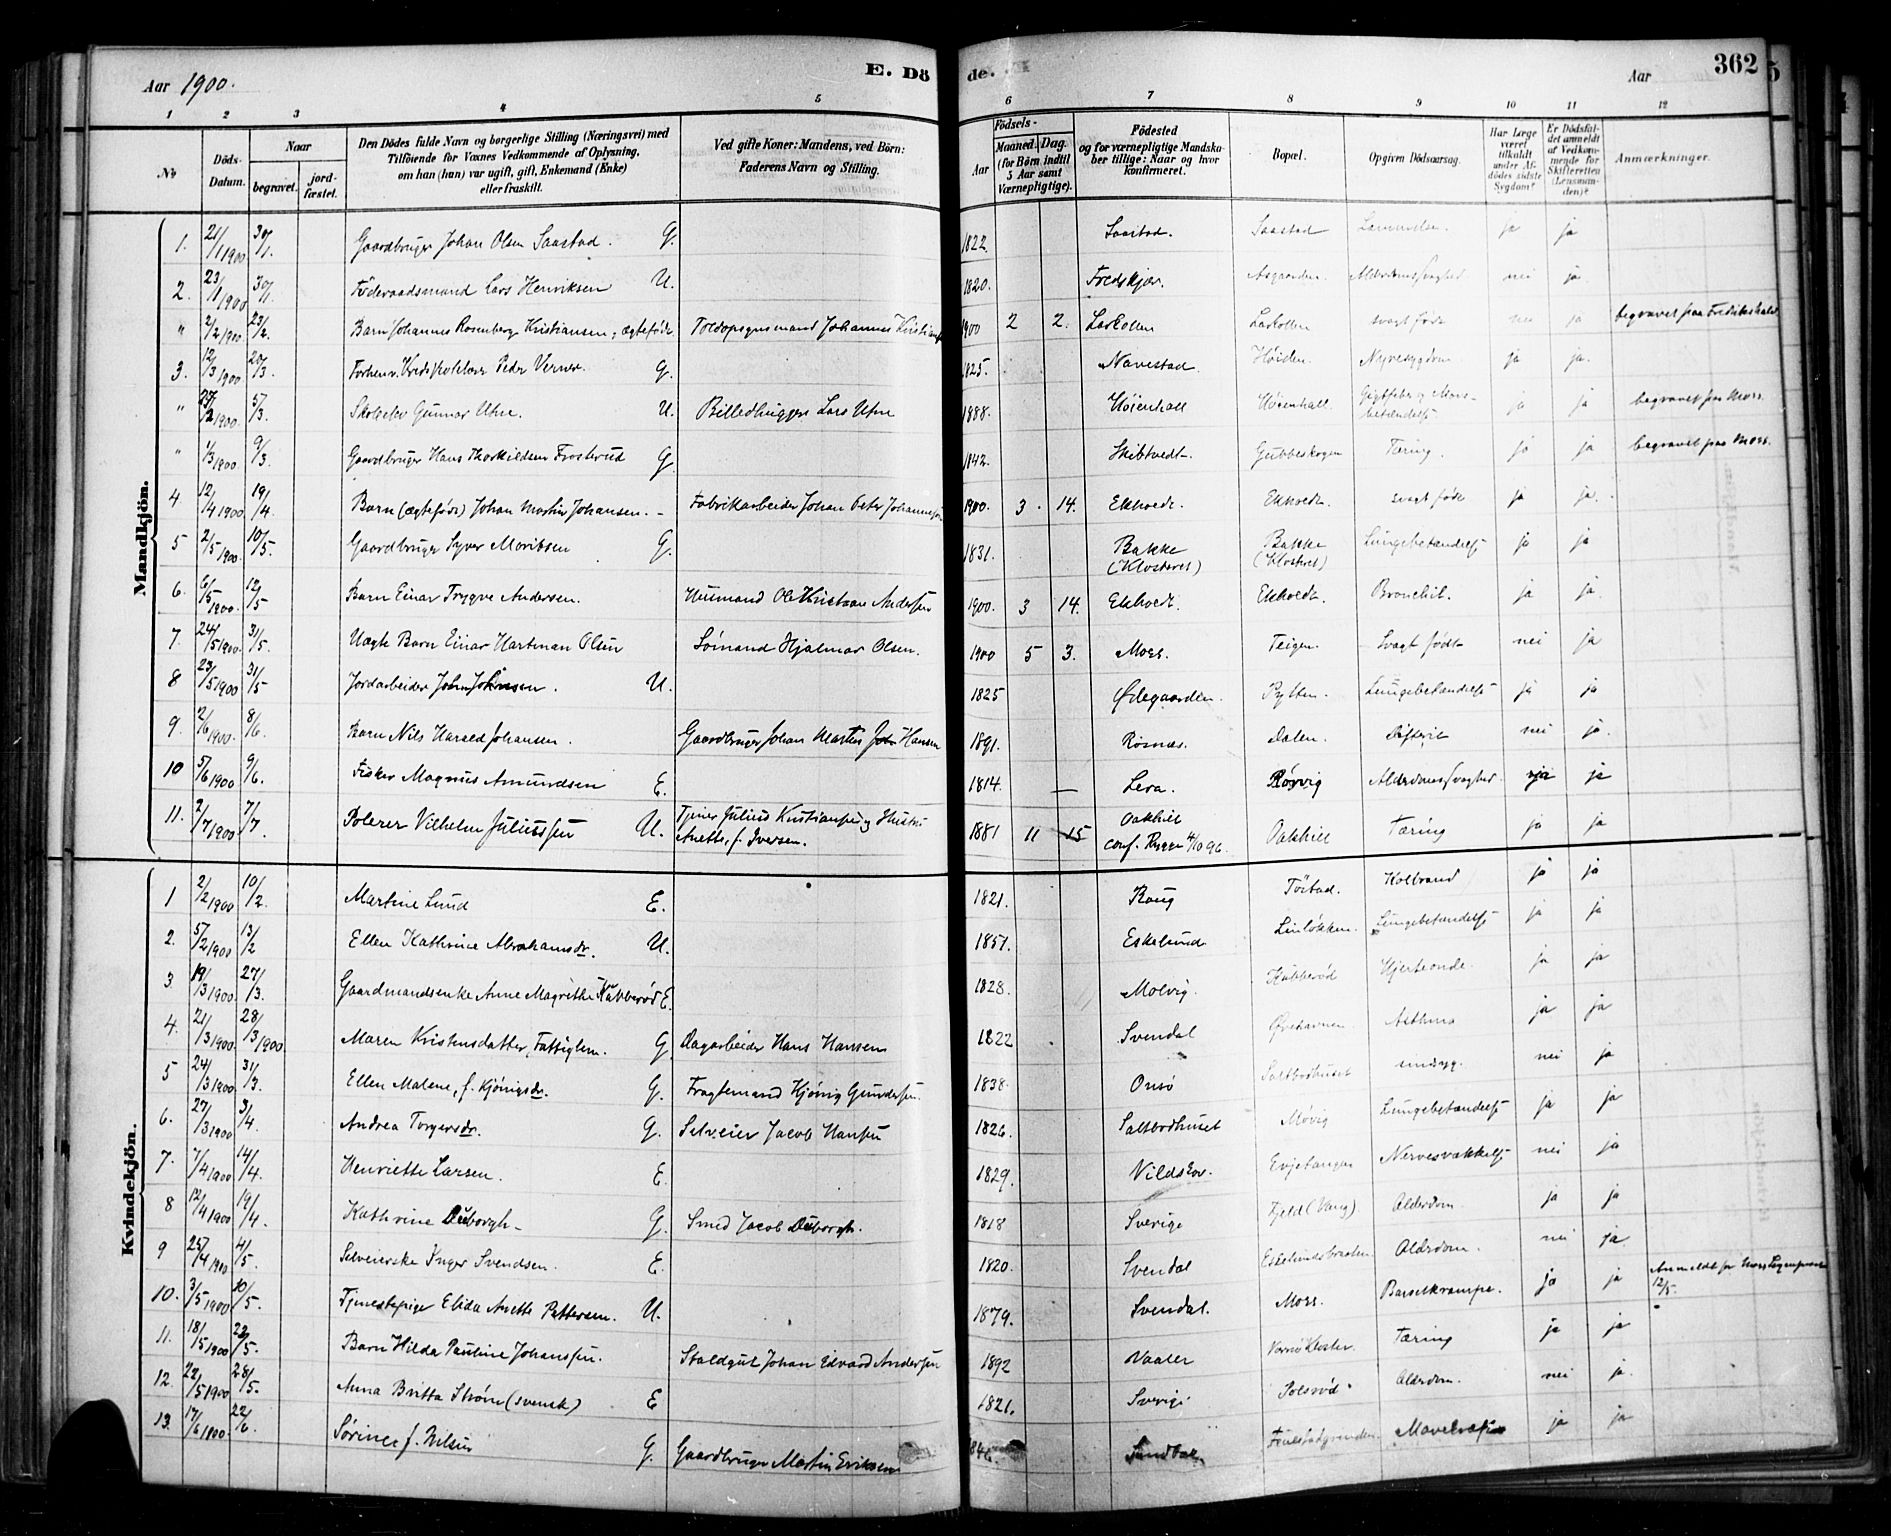 Aar 1900.
E. Dö
de.
Aar
362
1 2 3 4 5 6 7 8 9 10 11 12
№
Döds-Datum.
Naar
begravet.
jordfæstet.
Den Dödes fulde Navn og borgerlige Stilling (Næringsvei) med
Tilföiende for Voxnes Vedkommende af Oplysning,
om han (hun) var ugift, gift, Enkemand (Enke)
eller fraskilt.
Ved gifte Koner: Mandens, ved Börn:
Faderens Navn og Stilling.
Födsels-
Aar
Maaned.
Dag.
(for Börn indtil
5 Aar samt
Værnepligtige).
Födested
og for værnepligtige Mandskaber tillige: Naar og hvor
konfirmeret.
Bopæl.
Opgiven Dödsaarsag.
Har Læge
været
tilkaldt
under Afdödes sidste
Sygdom?
Er Dödsfaldet anmeldt
af Vedkommende for
Skifteretten
(Lensmanden)?
Anmærkninger.
Mandkjön.
1. 21/1 1900 30/1. Gaardbruger Johan Olsen Saastad. G. 1822. Saastad. Saastad ja ja
2. 23/1 1900 30/1. Föderaadsmand Lars Henriksen U. 1820. Fredskjær. Asgaarden. Alderdomssvaghed nei ja
" 2/2 1900 23/2. Barn Johannes Rosenberg Kristiansen, ægtefödt. Toldopsynsmand Johannes Kristiansen 1900 2 2. Larkollen Larkollen svagt födt nei ja begravet paa Fredrikshald
3. 12/3 1900 20/3. Forhenv. Kredsskolelærer Peder Verner G. 1825. Navestad. Höiden. Nyresygdom ja ja.
" 27/2 1900 5/3. Skoleelev Gunnar Utne. U. Billedhugger Lars Utne 1888. Höienhall Höienhall. Gigtfeber og ja ja begravet paa Moss.
" 1/3 1900 9/3. Gaardbruger Hans Thorkildsen Frosterud G. 1842. Skibtvedt. Gubbeskogen Tæring. ja ja begravet paa Moss.
4 12/4 1900 19/4. Barn (ægtefödt) Johan Martin Johansen. Fabrikarbeider Johan Peter Johannesen 1900. 3. 14. Ekholdt. Ekholdt. svagt födt ja ja.
5 2/5 1900 10/5. Gaardbruger Syver Moritsen G. 1831. Bakke (Klosteret) Bakke (Klosteret) Lungebetændelse ja ja
6. 6/5 1900. 12/5 Barn Einar Trygve Andersen. Huusmand Ole Kristian Andersen 1900. 3 14. Ekholdt. Ekholdt. Bronchit. ja ja.
7. 24/5 1900. 31/5. Uægte Barn Einar Hartman Olsen Sömand Hjalmar Olsen. 1900 5 3. Moss. Teigen. Svagt födt nei ja
8 23/5 1900 31/5 Jordarbeider John Johnsen. U. 1825 Ödegaarden. Pytten. Lungebetændelse ja ja
9. 2/6 1900. 8/6. Barn Nils Harald Johansen. Gaardbruger Johan Martin Hansen 1891. Rosnæs. Dalen. Difterit nei ja.
10 5/6 1900 9/6. Fisker Magnus Amundsen E. 1814. Lera. Rörvig Alderdomssvaghed. ja ja
11. 2/7 1900 7/7. Polerer Vilhelm Juliussen U. Tjener Julius Kristiansen og Hustru Anette, f. Iversen. 1881 11 15 Oakhill conf. Rygge 4/10 96. Oakhill Tæring ja ja
Kvindekjön.
1 2/2 1900 10/2. Martine Lund E. 1821. Roug Töistad. Koldbrand ja ja
2. 5/2 1900 13/2 Ellen Kathrine Abrahamsdr. U. 1857. Eskelund Linlökken. Lungebetændelse ja ja
3 19/3 1900. 27/3. Gaardmandsenke Anne Magrethe Kubberöd E. 1828. Molvig. Kubberöd Hjerteonde. ja ja
4. 21/3 1900. 28/3 1900 Maren Kristensdatter, Fattiglem. G. Dagarbeider Hans Hansen 1822 Svendal Örehavnen Asthma ja ja
5 24/3 1900 31/3. Ellen Malene, f. Kjönigsdr. G. Fragtemand Kjönig Gundersen. 1838. Onsö Saltbodhuset sindsyg. nei ja
6. 27/3 1900 3/4. Andrea Torgersdr. G. Selveier Jacob Hansen 1826. Saltbodhuset Movig Lungebetændelse ja ja
7. 7/4 1900 14/4. Henriette Larsen. E. 1829. Vildskov. Evjetangen Nervesvækkelse nei ja
8 12/4 1900 19/4. Kathrine Duborgh. G. Smed Jacob Duborgh. 1818 Sverige Fjeld (Vang). Alderdom. ja ja
9 25/4 1900 4/5. Selveierske Inger Svendsen. E. 1820. Svendal Eskelundsbraaten. Alderdom. nei ja.
10. 3/5 1900 10/5. Tjenestepige Elida Anette Pettersen. U. 1879. Svendal. Moss. Barselkrampe. ja ja Anmeldt for Moss Sogneprest 12/5.
11. 18/5 1900 22/5. Barn Hilda Pauline Johanssen. Staldgut Johan Edvard Andersen 1892 Vaaler Værnö Kloster Tæring ja ja
12. 22/5 1900 28/5. Anna Britta Ström (svensk) E 1821. Sverige Polsröd. Alderdom. nei ja.
13. 17/6 1900 22/6. Sörine f. Nilsen G. Gaardbruger Martin Eriksen 1846. ja ja